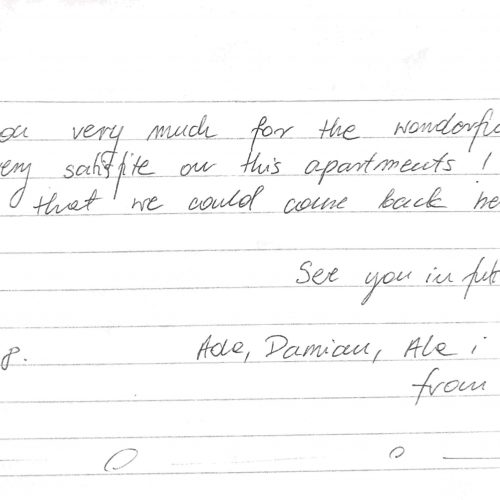 ou very much for the wonderfu
ery satisfite our this apartments!
that we could come back he
See you in fut
8.
Ada, Damian, Ala i
from